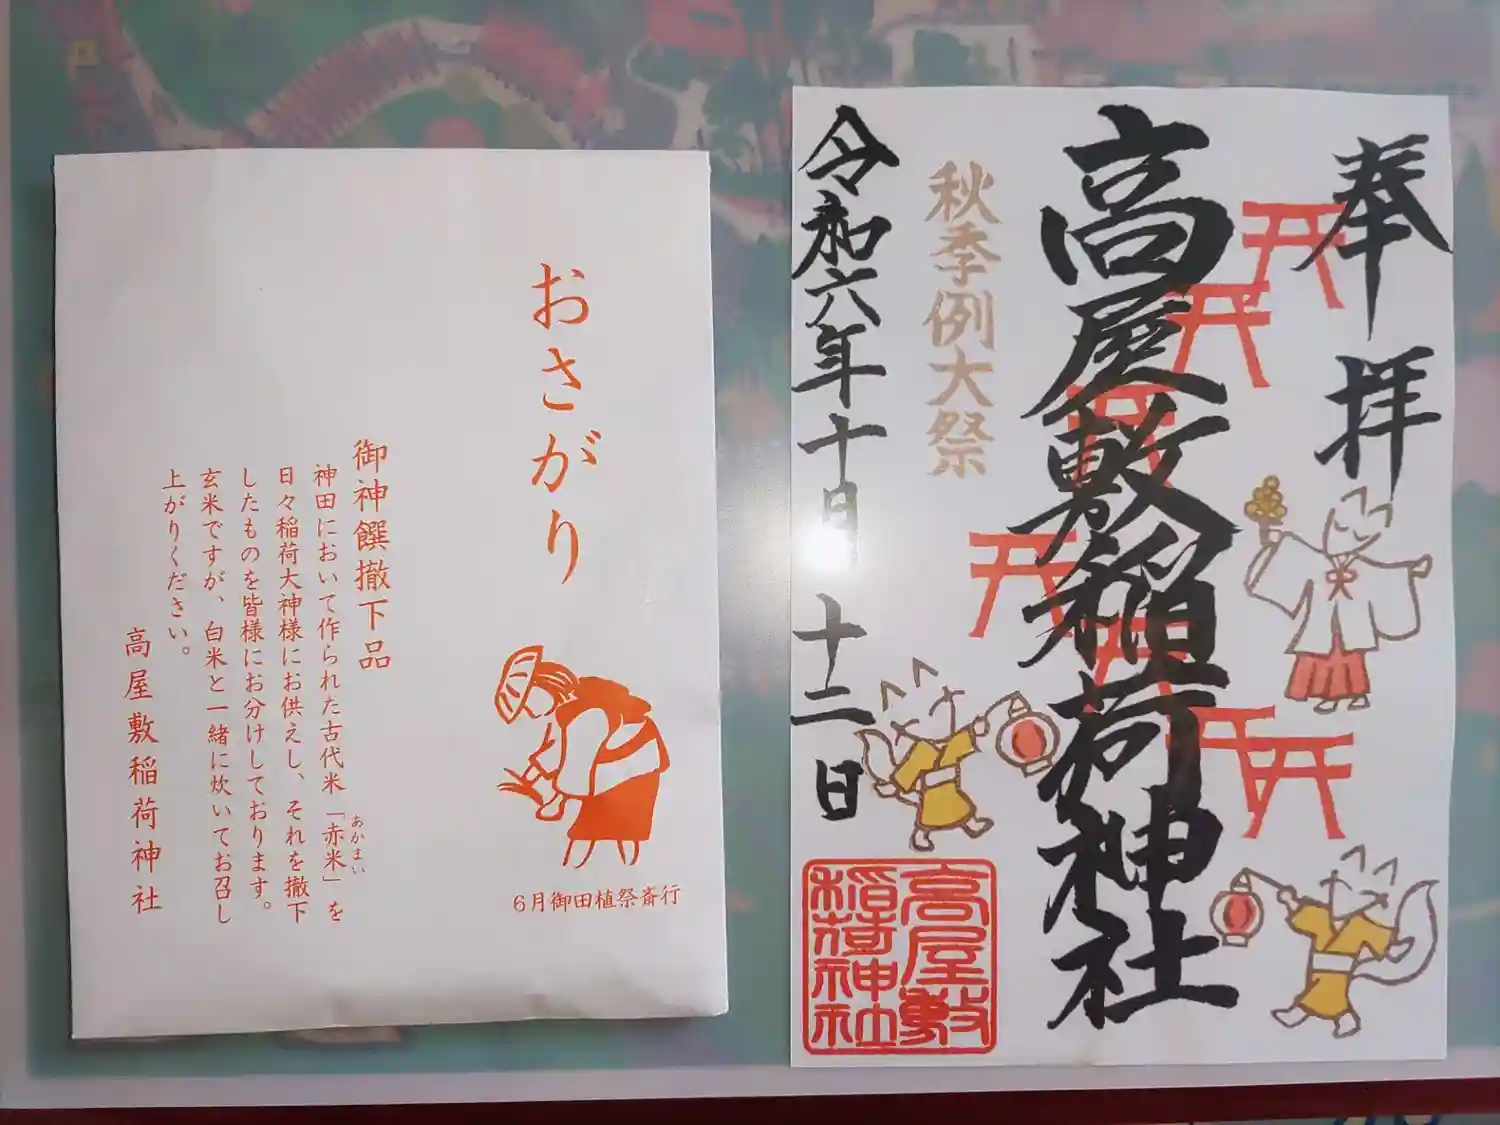 おさがり
6月御田植祭斎行
御神饌撤下品
神田において作られた古代米「赤米」を
あかまい
日々稲荷大神様にお供えし、それを撤下
したものを皆様にお分けしております。
玄米ですが、白米と一緒に炊いてお召し
上がりください。
高屋敷稲荷神社
奉拝
高屋敷稲荷神社
秋季例大祭
令和六年十月十二日
高屋敷
稲荷神社